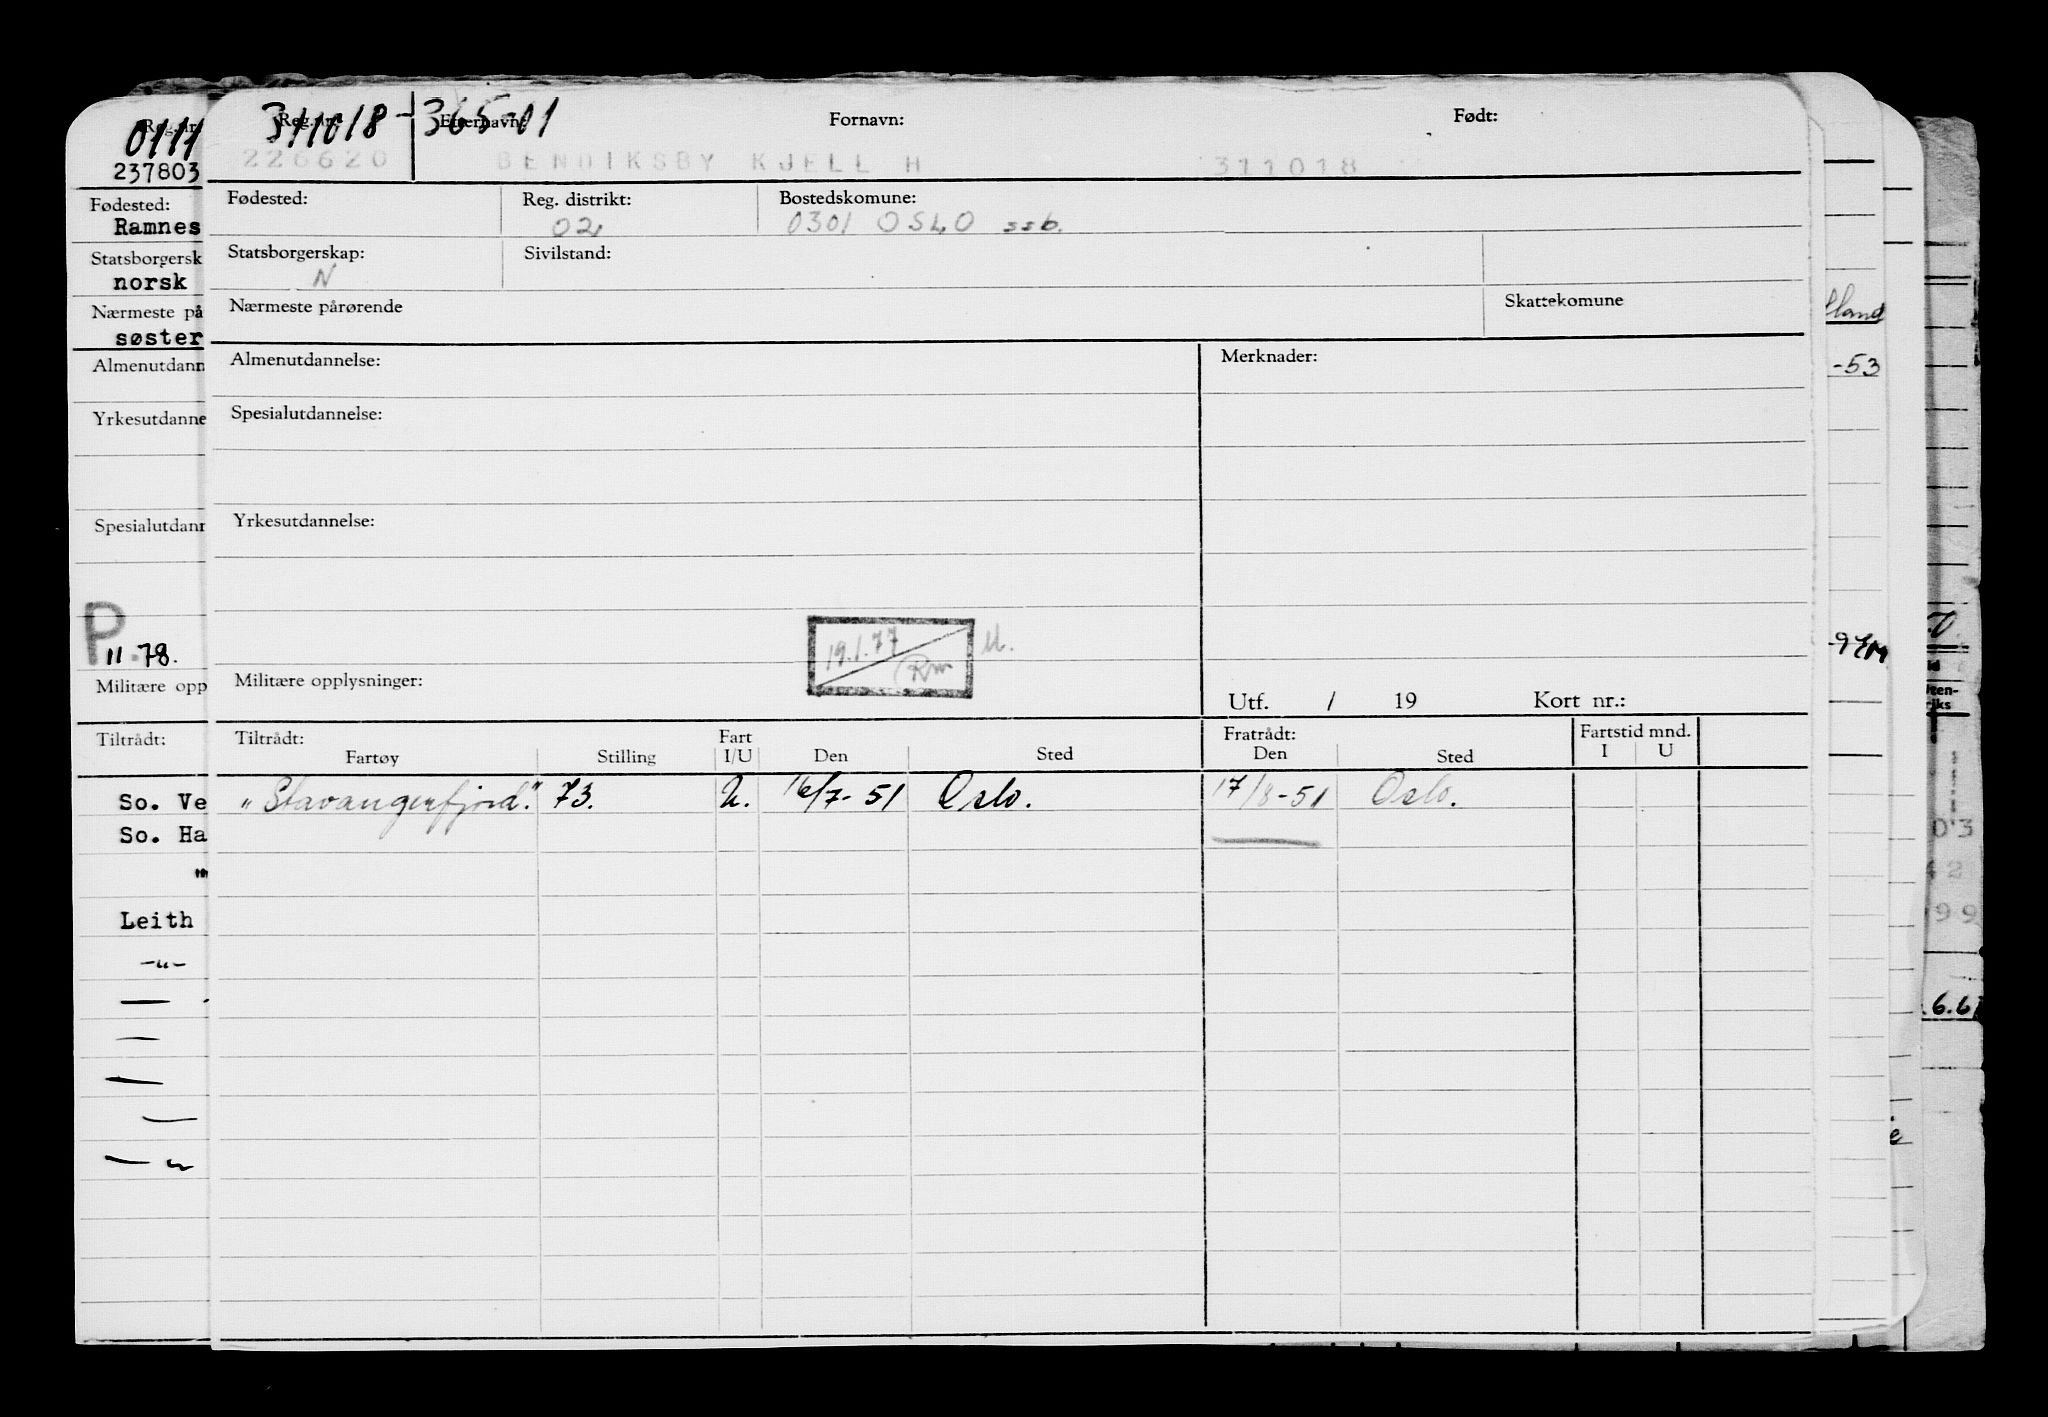 Reg. nr. 311018-365-01 Etternavn: Fornavn: Født:
226620 BENDIKSBY KJELL H 311018
Fødested: Reg. distrikt: Bostedskomune:
02 0301 OSLO ssb.
Statsborgerskap: Sivilstand:
N
Nærmeste pårørende Skattekomune
Almenutdannelse: Merknader:
Spesialutdannelse:
Yrkesutdannelse:
19.1.77
Militære opplysninger:
Utf. / 19 Kort nr.:
Tiltrådt: Fart Fratrådt: Fartstid mnd.
Fartøy Stilling I/U Den Sted Den Sted I U
"Stavangerfjord." 73. U. 16/7-51 Oslo. 17/8-51 Oslo.
0111
237803
Fødested:
Ramnes
Statsborgersk
norsk
Nærmeste på
søster
Almenutdann
Yrkesutdanne
Spesialutdann
P
11.78.
Militære opp
Tiltrådt:
So. Ve
So. Ha
Leith
-"-
-53
6.6